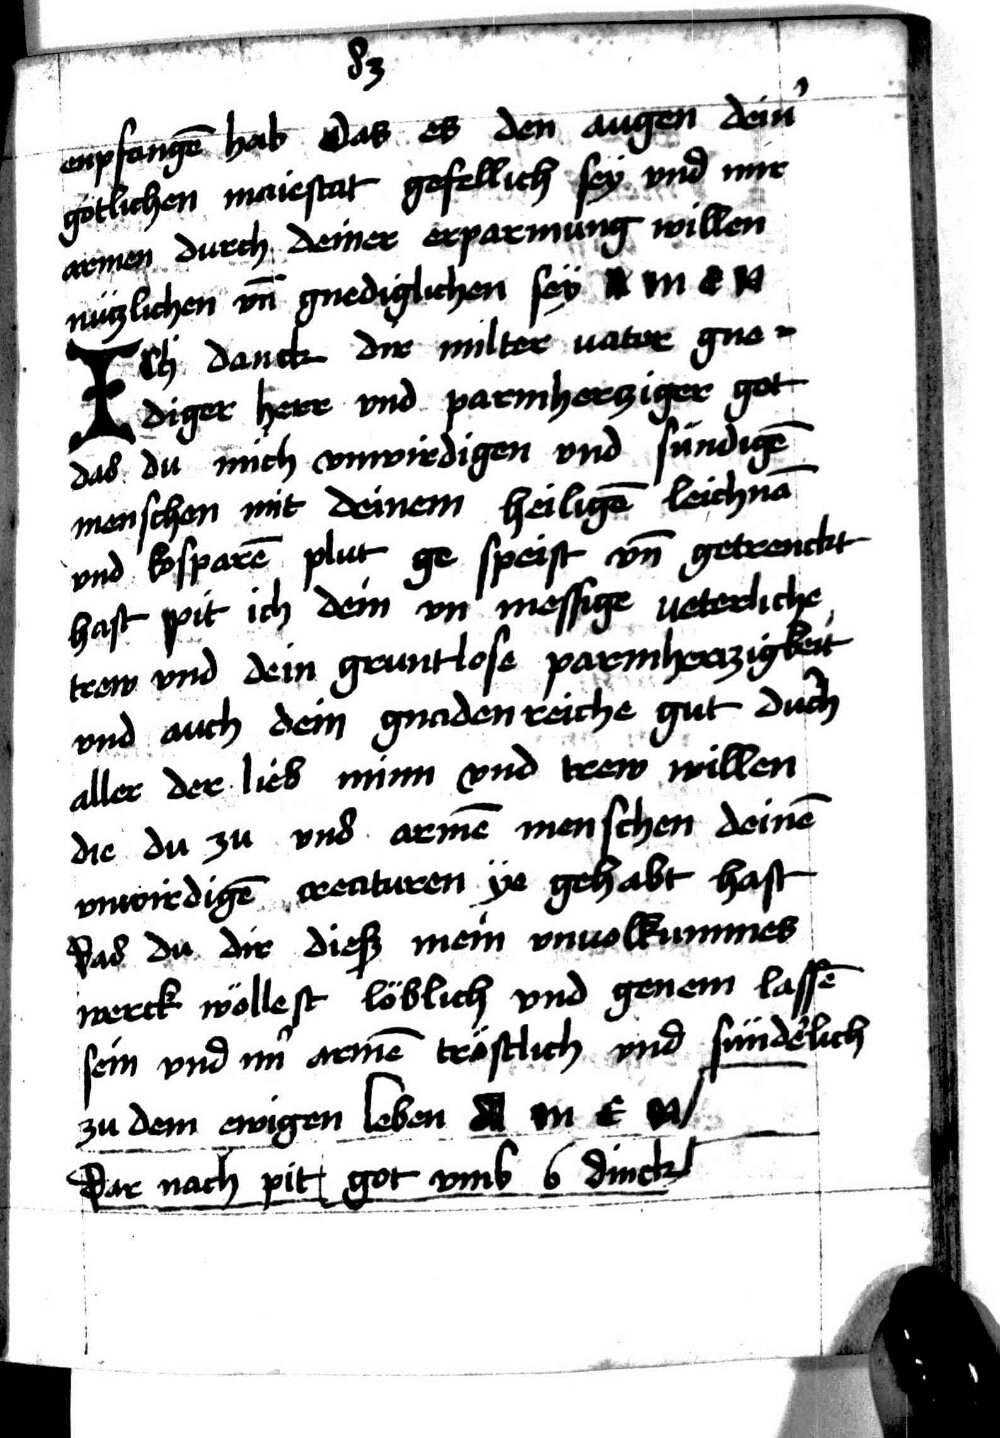 83
enpfangē hab Das es den augen dein̕
götlichen maiestat gefellich sey vnd mir
armen durch deiner erparmung willen
nützlichen vn̄ gnediglichen sey A M E N
ICh danck dir milter uater gne-
diger herr vnd parmhercziger got
das du mich vnwirdigen vnd sündigē
menschen mit deinem heiligē leichnā
vnd kosparē plut ge speist vn̄ getrenckt
hast pit ich dein vn messige ueterliche
trew vnd dein gruntlose parmherczigkeit
vnd auch dein gnadenreiche gut durch
aller der lieb minn vnd trew willen
die du zu vns armē menschen deinē
vnwirdigē creaturen ÿe gehabt hast
Das du dir dieß mein vnuolkummes
werck wöllest löblich vnd genem lassē
sein vnd mi̕ armē tröstlich vnd sünde̕lich
zu dem ewigen leben A M E N
Dar nach pit got vmb 6 dinck